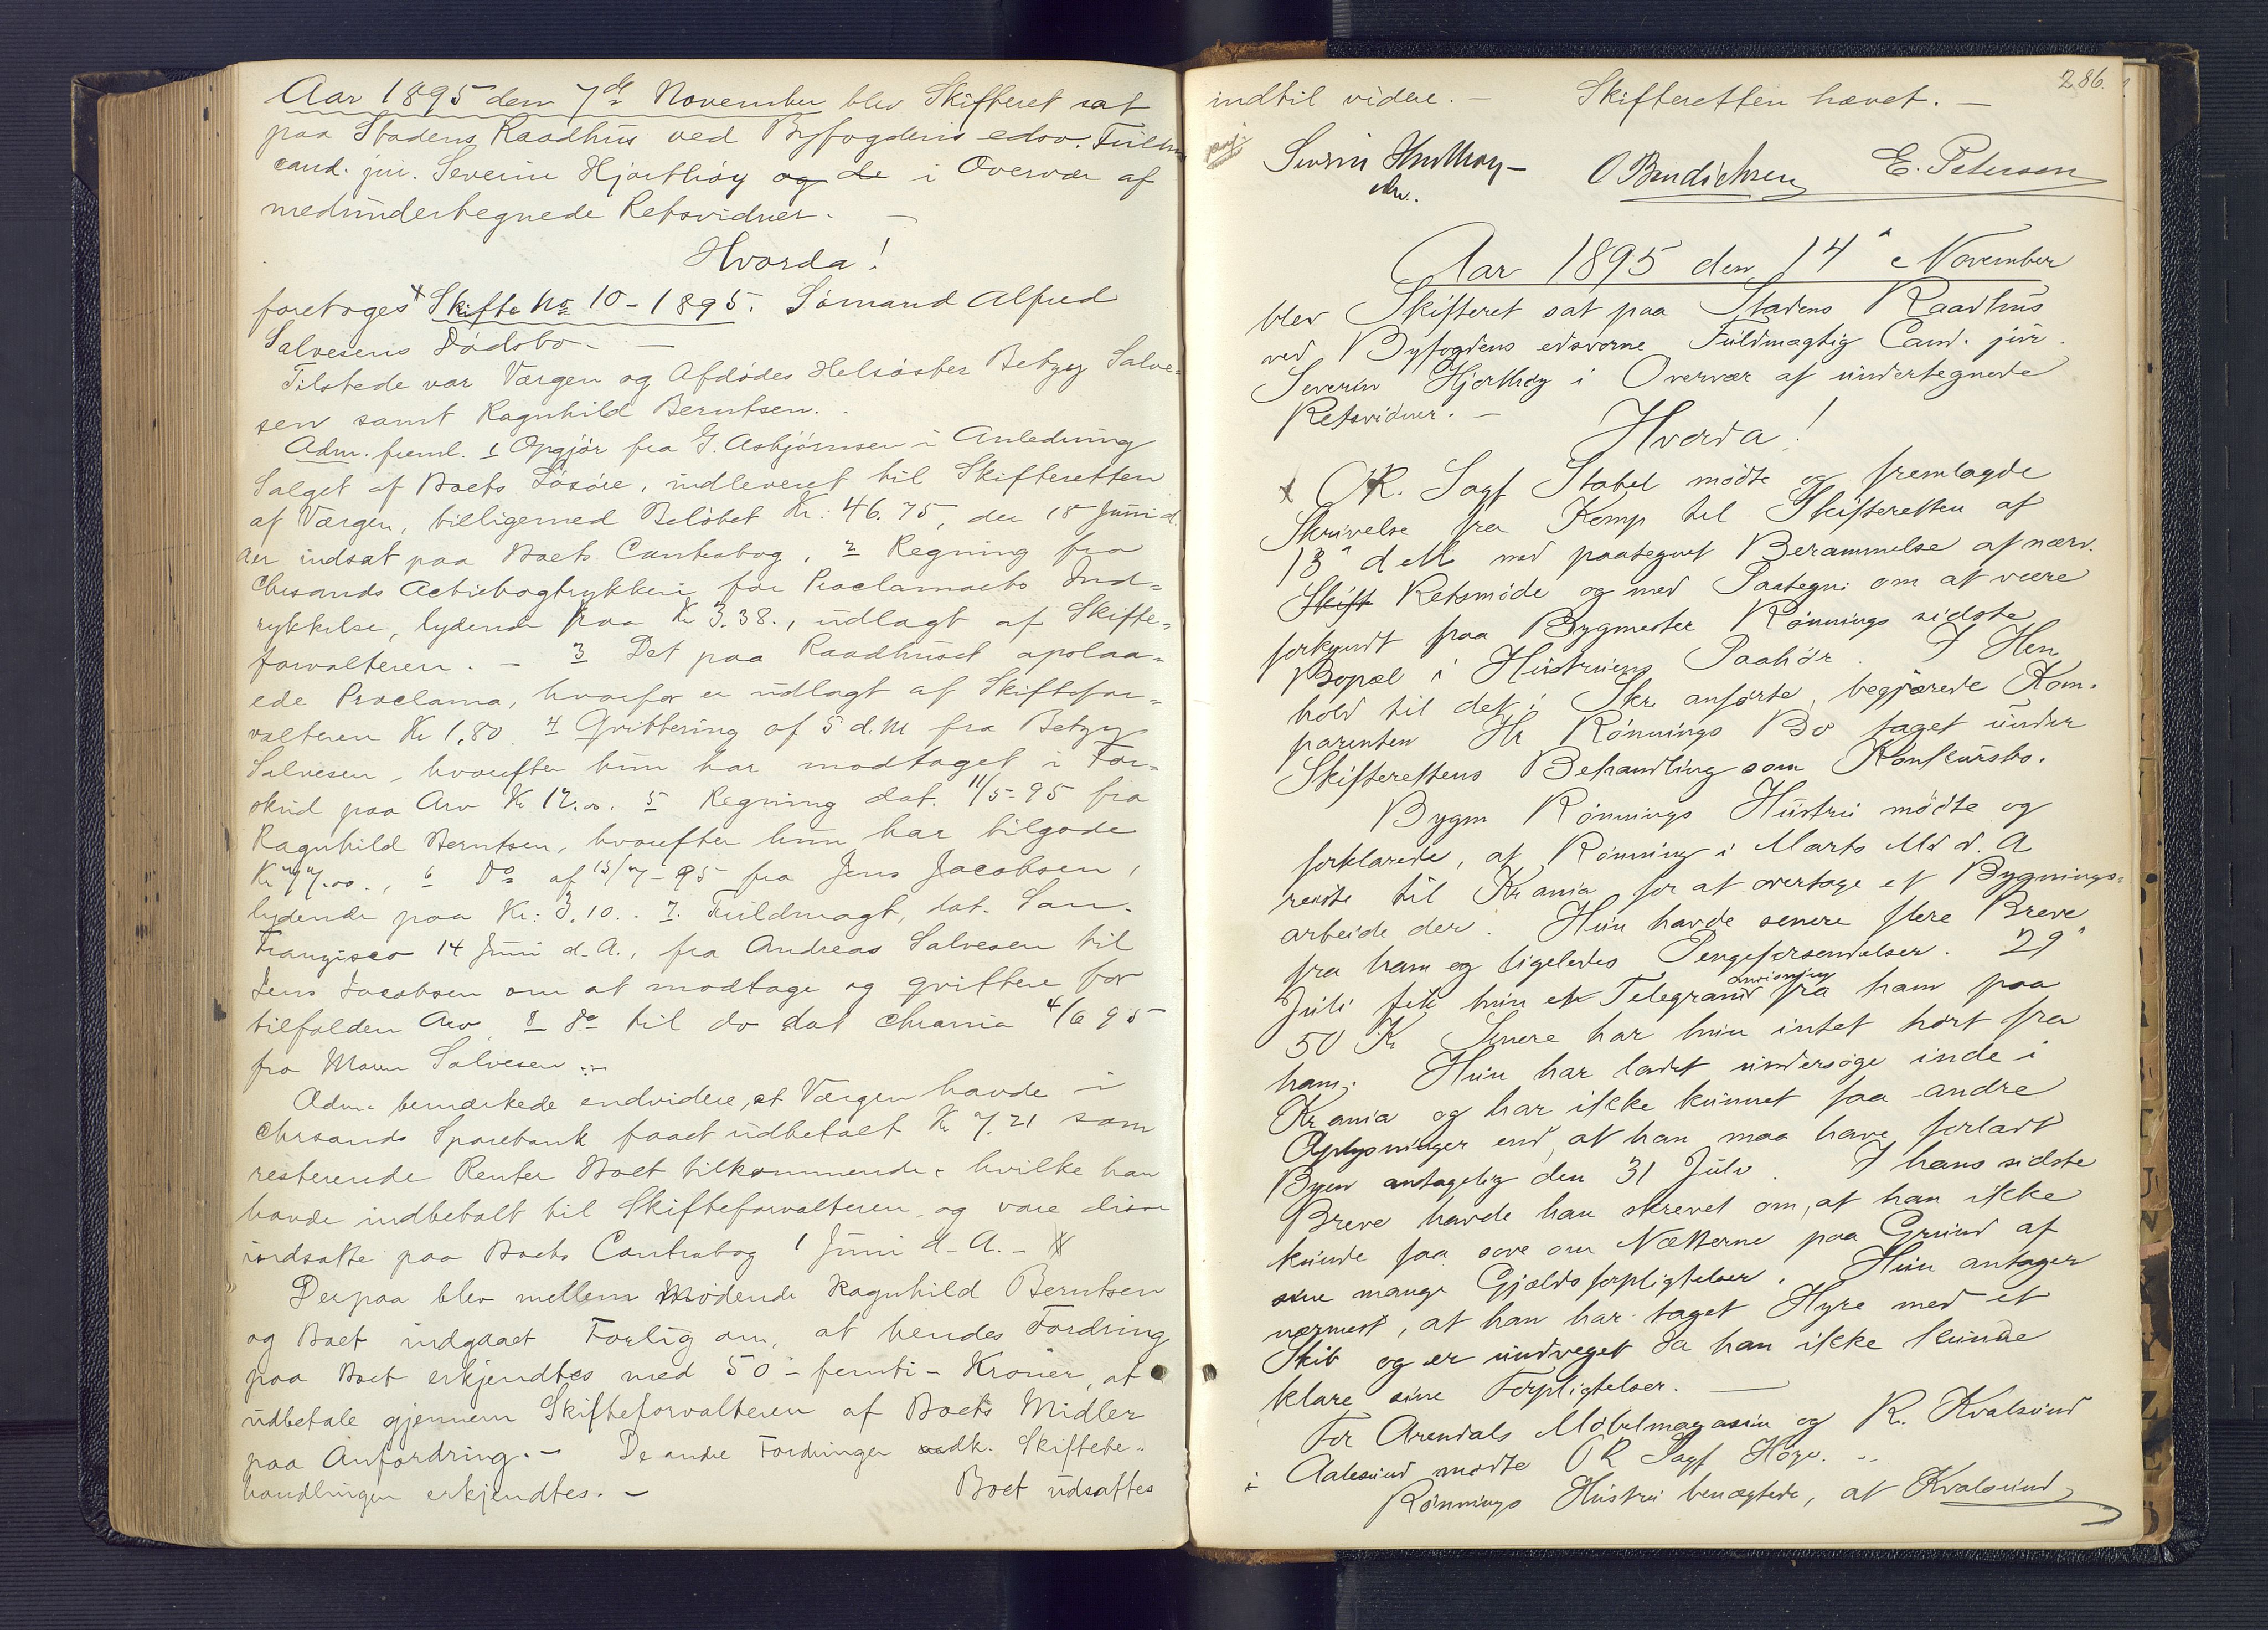 Aar 1895 den 7de November blev Skifteret sat
paa Stadens Raadhus ved Byfogdens edsv. Fuldm
cand. jur. Severin Hjorthøy og de i Overvær af
medundertegnede Retsvidner. —
Hvorda!
foretoges x Skifte No 10 - 1895. Sømand Alfred
Salvesens Dødsbo. —
Tilstede var Værgen og Afdødes Helsøster Betzy Salve-
sen samt Ragnhild Berntsen.
Adm. freml. 1 Opgjør fra G. Asbjørnsen i Anledning
Salget af Boets Løsøre, indleveret til Skifteretten
af Værgen, tilligemed Beløbet Kr: 46.75, der 18 Juni d.
Aar indsat paa Boets Contrabog, 2 Regning fra
Chrsands Actiebogtrykkeri for Proclamaets Ind-
rykkelse, lydende paa Kr 3.38., udlagt af Skifte-
forvalteren. — 3 Det paa Raadhuset opslaa-
ede Proclama, hvorfor er udlagt af Skiftefor-
valteren Kr 1,80. 4 Qvittering af 5 d.M fra Betzy
Salvesen, hvorefter hun har modtaget i For-
skud paa Arv Kr 12.00. 5 Regning dat. 11/5-95 fra
Ragnhild Berntsen, hvorefter hun har tilgode
Kr 77.00., 6 Do af 15/7-95 fra Jens Jacobsen,
lydende paa Kr: 3.10.. 7. Fuldmagt, dat. San.
Franzisco 14 Juni d.A., fra Andreas Salvesen til
Jens Jacobsen om at modtage og qvittere for
tilfalden Arv. 8 Do til do dat Chrania 4/6 95
fra Maren Salvesen :-
Adm. bemærkede endvidere, at Værgen havde i
Chrsands Sparebank faaet udbetalt Kr 7.21 som
resterende Renter Boet tilkommende, hvilke han
havde indbetalt til Skifteforvalteren og vare disse
indsatte paa Boets Contrabog 1 Juni d.A. —
Derpaa blev mellem Mødende Ragnhild Berntsen
og Boet indgaaet Forlig om, at hendes Fordring
paa Boet erkjendtes med 50 - femti - Kroner, at
udbetale gjennem Skifteforvalteren af Boets Midler
paa Anfordring. — De andre Fordringer vedk. Skiftebe-
handlingen erkjendtes. — Boet udsattes
286.
indtil videre. — Skifteretten hævet. —
Severin Hjorthøy —
edsv.
O Bendichsen E. Petersen
Aar 1895 den 14 November
blev Skifteret sat paa Stadens Raadhus
ved Byfogdens edsvorne Fuldmægtig Cand. jur.
Severin Hjorthøy i Overvær af undertegnede
Retsvidner. —
Hvorda!
x OR. Sagf Stabel mødte og fremlagde
Skrivelse fra Komp til Skifteretten af
13 d M med paategnet Berammelse af nærv.
Skift Retsmøde og med Paategn: om at være
forkyndt paa Bygmester Rønnings sidste
Bopæl i Hustruens Paahør. I Hen
hold til det i Skr. anførte, begjærede Kom.
parenten Hr Rønnings Bo taget under
Skifterettens Behandling som Konkursbo.
Bygm Rønnings Hustru mødte og
forklarede, at Rønning i Marts Md d. A
reiste til Kr ania for at overtage et Bygnings-
arbeide der. Hun havde senere flere Breve
fra ham og ligeledes Pengeforsendelser. 29
Juli fik hun en Telegramanvisning fra ham paa
50 Kr Senere har hun intet hørt fra
ham. Hun har ladet undersøge inde i
Kr ania og har ikke kunnet faa andre
Oplysninger end at han maa have forladt
Byen antagelig den 31 Juli. I hans sidste
Breve havde han skrevet om, at han ikke
kunde faa sove om Nætterne paa Grund af
sine mange Gjældsforpligtelser. Hun antager
nærmest, at han har taget Hyre med et
Skib og er undveget da han ikke kunde
klare sine Forpligtelser. —
For Arendals Møbelmagasin og R. Kvalsund
i Aalesund mødte OR Sagf Høge. --
Rønnings Hustru benægtede, at Kvalsund